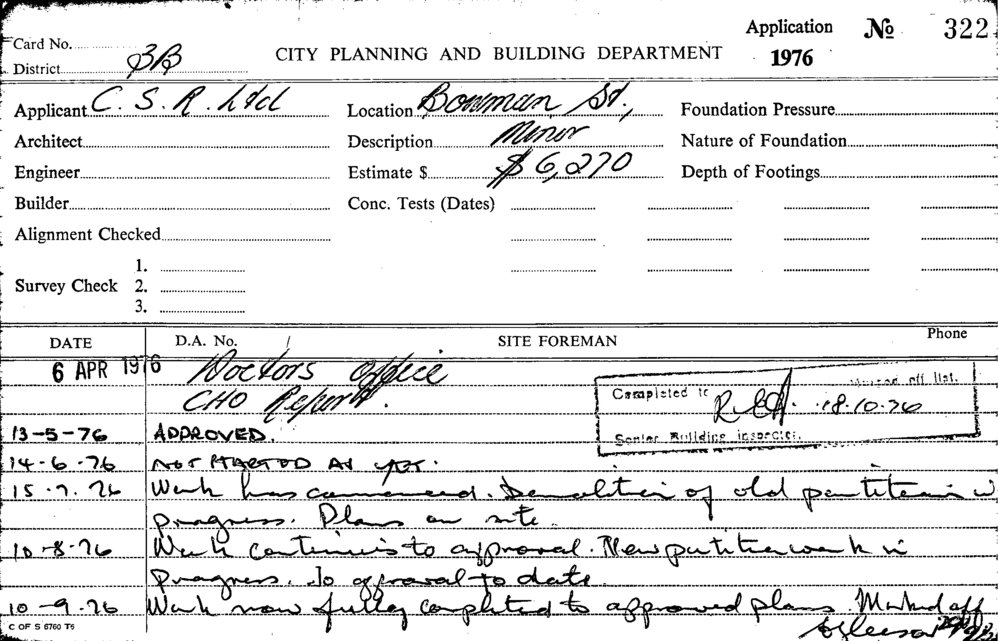 Application № 322
Card No.
CITY PLANNING AND BUILDING DEPARTMENT
1976
District 3B
Applicant C. S. R. Ltd Location Bowman St., Foundation Pressure
Architect Description Minor Nature of Foundation
Engineer Estimate $ $6,270 Depth of Footings
Builder Conc. Tests (Dates)
Alignment Checked
1.
Survey Check 2.
3.
DATE D.A. No. SITE FOREMAN Phone
6 APR 1976 Doctors Office
CHO Report.
Completed to off list.
18.10.76
Senior Building Inspector.
13-5-76 APPROVED.
14-6-76 NOT STARTED AS YET.
15.7.76 Work has commenced. Demolition of old partitions in
progress. Plans on site.
10-8-76 Work continues to approval. New partition work in
progress. To approval to date.
10-9-76 Work now fully completed to approved plans. Marked off
C OF S 6760 T6